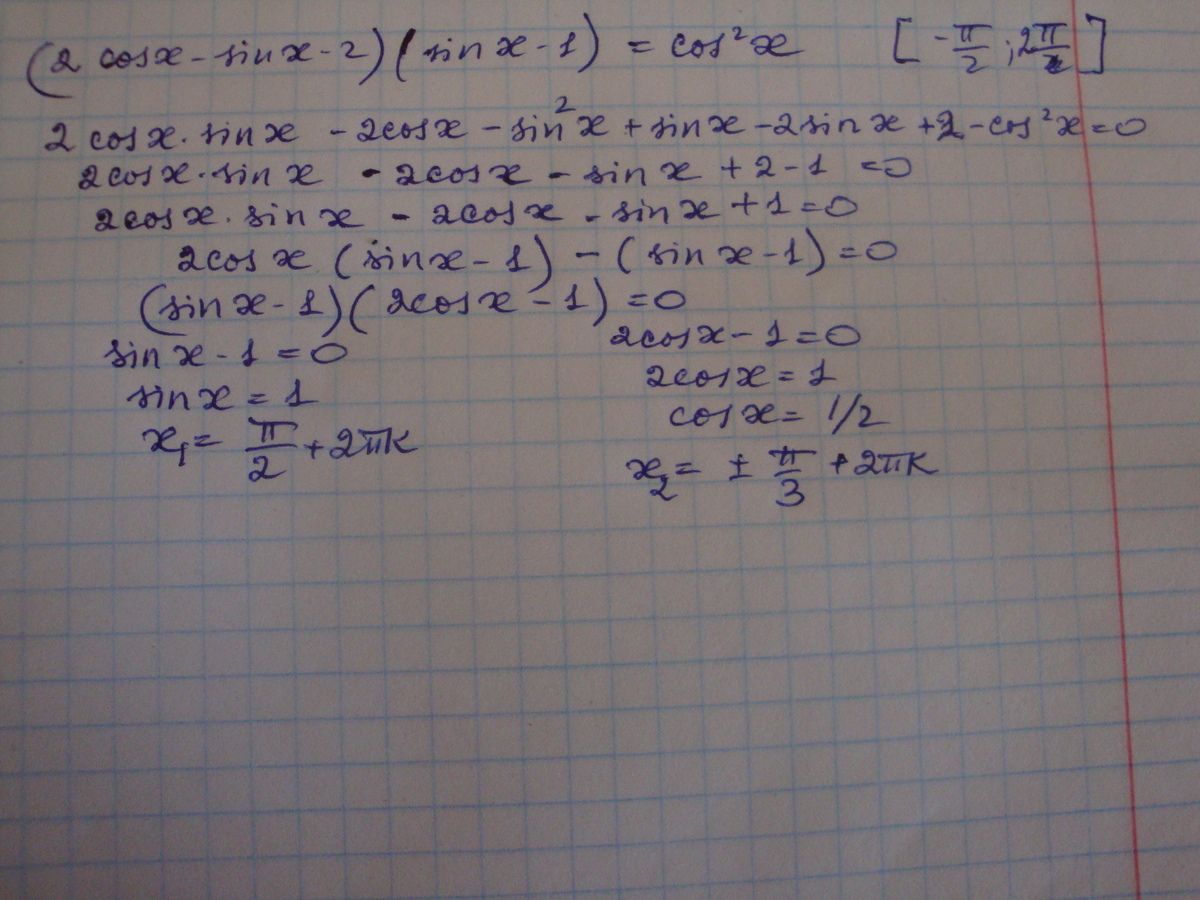 (2 cosx - sinx - 2)(sin x - 1) = cos²x [-π/2; 2π]
2 cosx · sinx - 2cosx - sin²x + sinx - 2sinx + 2 - cos²x = 0
2cosx · sinx - 2cosx - sinx + 2 - 1 = 0
2cosx · sinx - 2cosx - sinx + 1 = 0
2cosx (sinx - 1) - (sinx - 1) = 0
(sinx - 1)(2cosx - 1) = 0
sinx - 1 = 0 2cosx - 1 = 0
sinx = 1 2cosx = 1
cosx = 1/2
x₁ = π/2 + 2πk x₂ = ± π/3 + 2πk